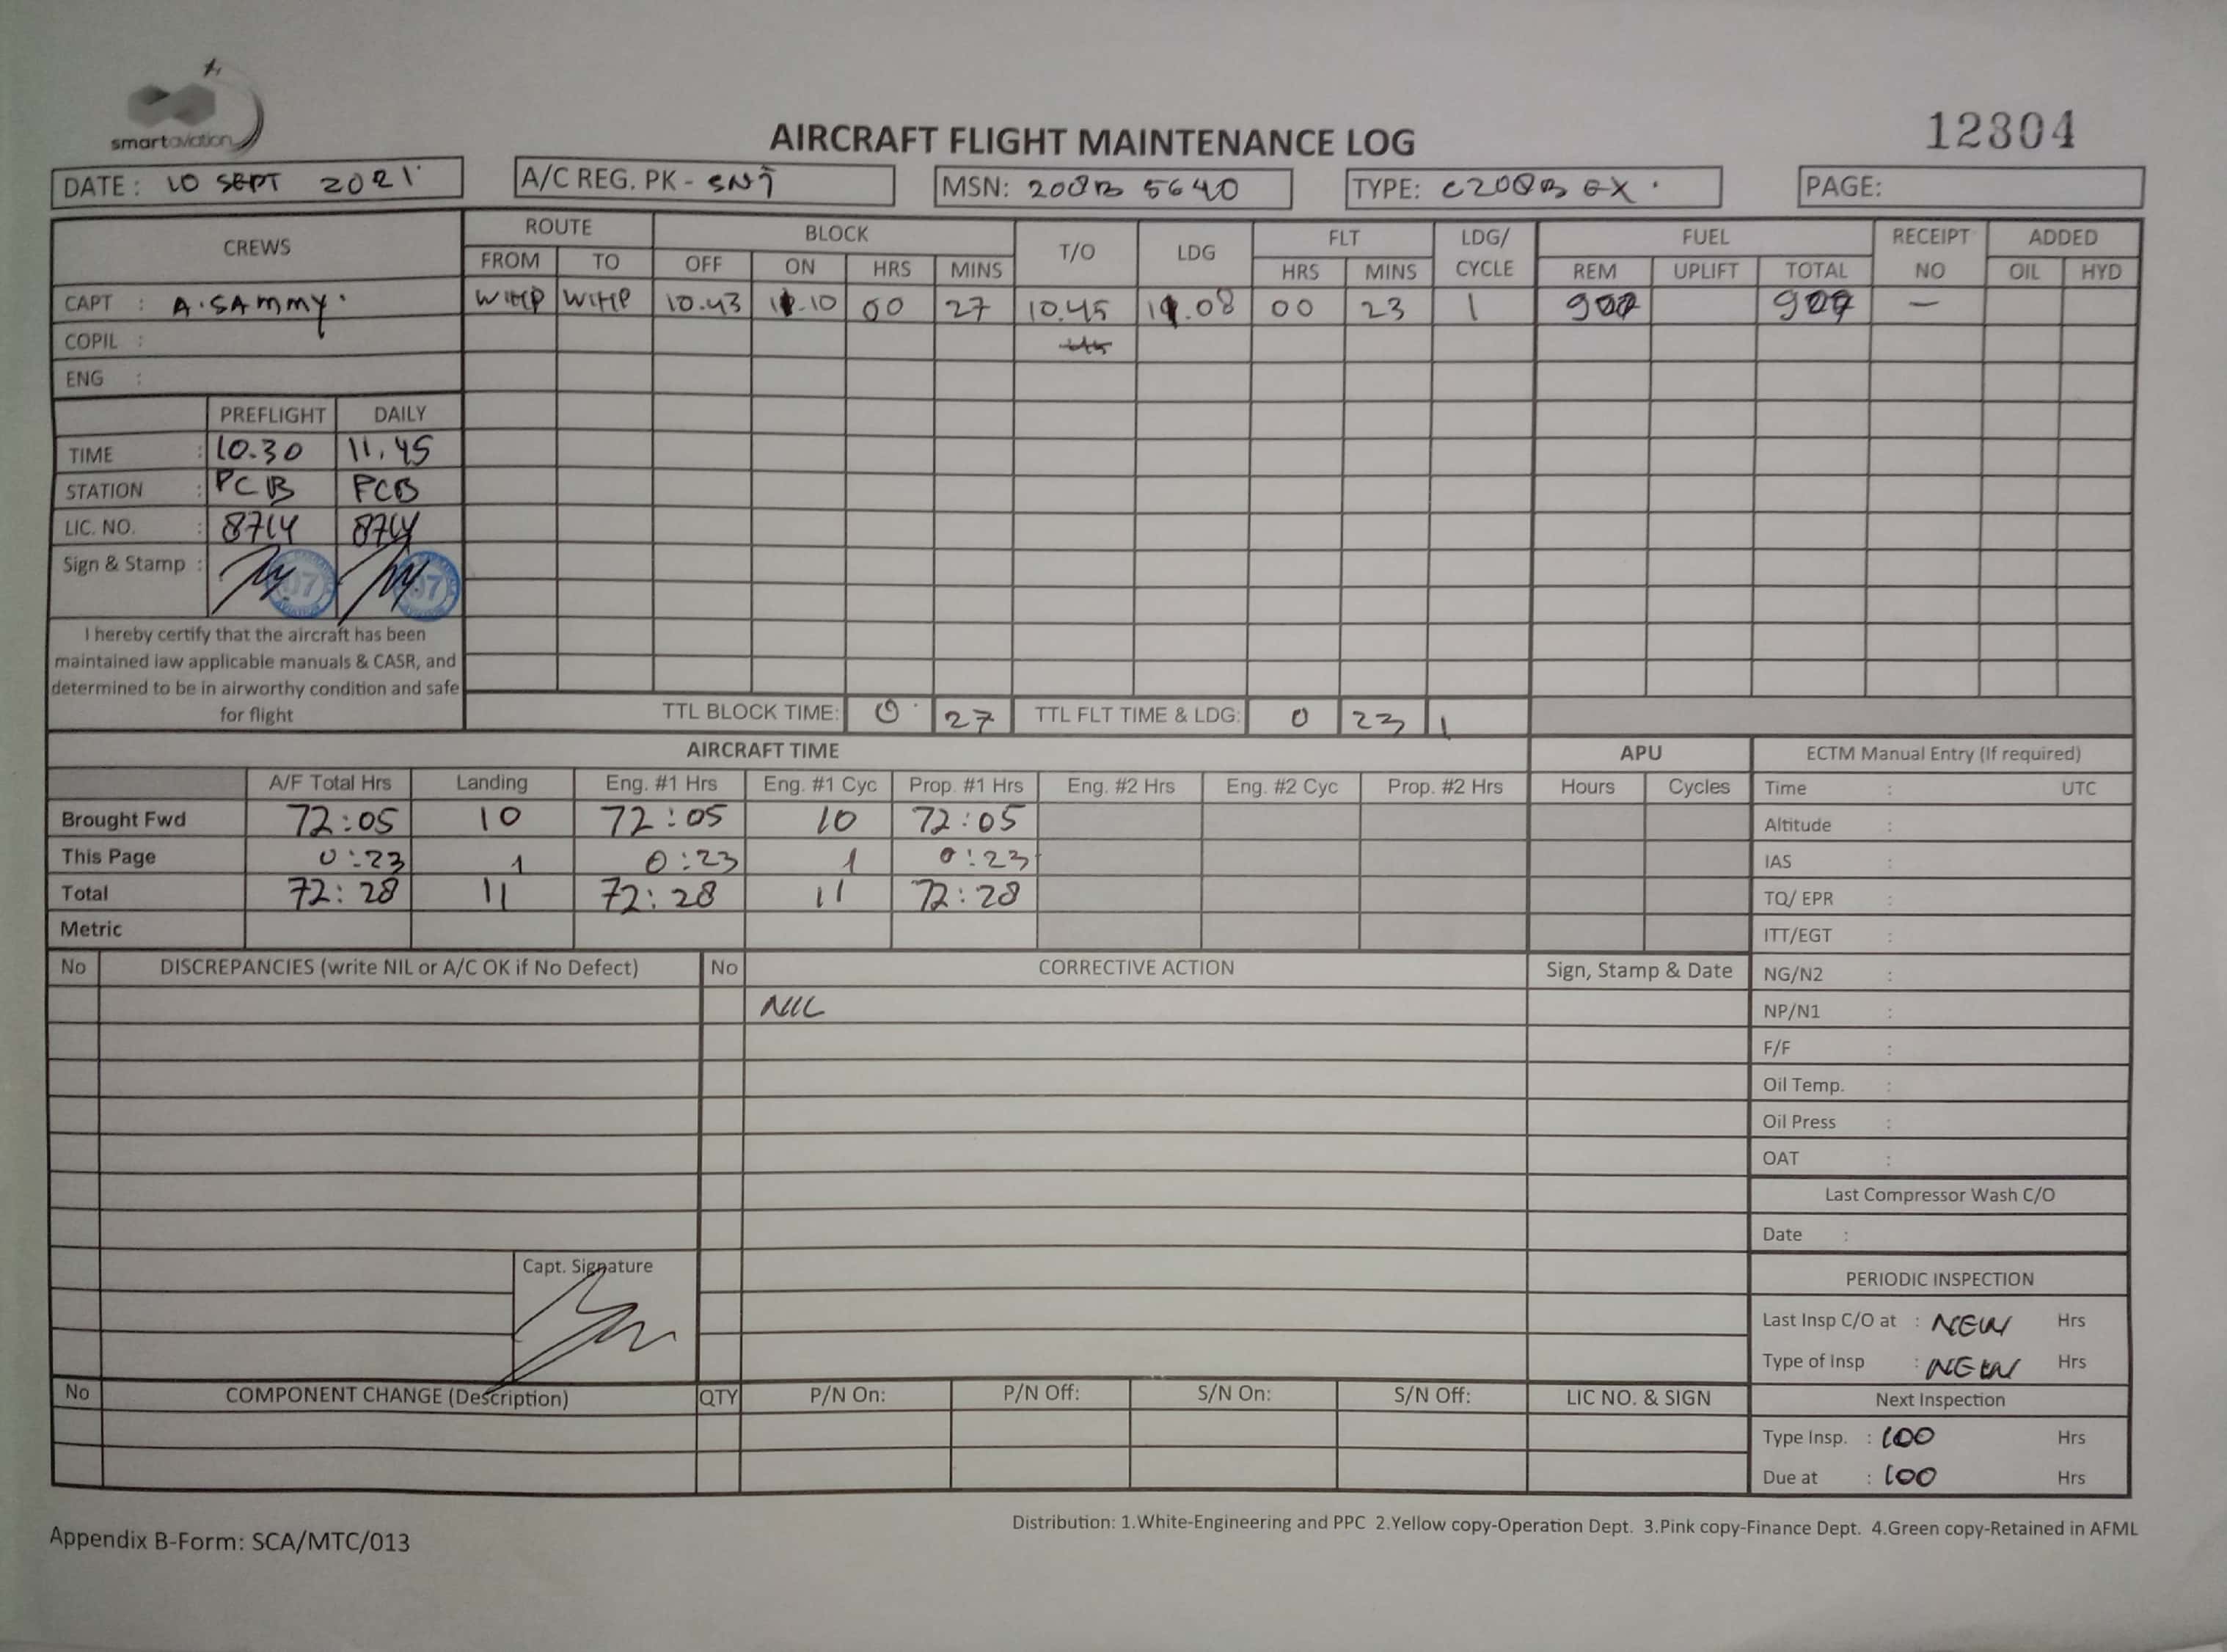 smartaviation
12304
AIRCRAFT FLIGHT MAINTENANCE LOG
DATE : 10 SEPT 2021 A/C REG. PK - SNT MSN: 208B 5640 TYPE: C208B EX PAGE:
CREWS ROUTE BLOCK T/O LDG FLT LDG/ CYCLE FUEL RECEIPT NO ADDED
FROM TO OFF ON HRS MINS HRS MINS REM UPLIFT TOTAL OIL HYD
CAPT : A. SAMMY. WIHP WIHP 10.43 11.10 00 27 10.45 11.08 00 23 1 —
COPIL :
ENG :
PREFLIGHT DAILY
TIME : 10.30 11.45
STATION : PCB PCB
LIC. NO. : 8714 8714
Sign & Stamp : 07 07
I hereby certify that the aircraft has been
maintained iaw applicable manuals & CASR, and
determined to be in airworthy condition and safe
for flight
TTL BLOCK TIME: 0 27 TTL FLT TIME & LDG: 0 23 1
AIRCRAFT TIME APU ECTM Manual Entry (If required)
A/F Total Hrs Landing Eng. #1 Hrs Eng. #1 Cyc Prop. #1 Hrs Eng. #2 Hrs Eng. #2 Cyc Prop. #2 Hrs Hours Cycles Time : UTC
Brought Fwd 72:05 10 72:05 10 72:05 Altitude :
This Page 0:23 1 0:23 1 0:23 IAS :
Total 72:28 11 72:28 11 72:28 TQ/ EPR :
Metric ITT/EGT :
No DISCREPANCIES (write NIL or A/C OK if No Defect) No CORRECTIVE ACTION Sign, Stamp & Date NG/N2 :
NIL NP/N1 :
F/F :
Oil Temp. :
Oil Press :
OAT :
Last Compressor Wash C/O
Date :
Capt. Signature
PERIODIC INSPECTION
Last Insp C/O at : NEW Hrs
Type of Insp : NEW Hrs
No COMPONENT CHANGE (Description) QTY P/N On: P/N Off: S/N On: S/N Off: LIC NO. & SIGN Next Inspection
Type Insp. : 100 Hrs
Due at : 100 Hrs
Distribution: 1.White-Engineering and PPC 2.Yellow copy-Operation Dept. 3.Pink copy-Finance Dept. 4.Green copy-Retained in AFML
Appendix B-Form: SCA/MTC/013